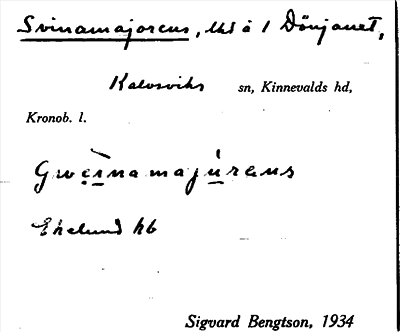 Svinamajorens, lht å 1 Dönjanet,
Kalvsviks sn, Kinnevalds hd,
Kronob. l.
Ekelund hb
Sigvard Bengtson, 1934